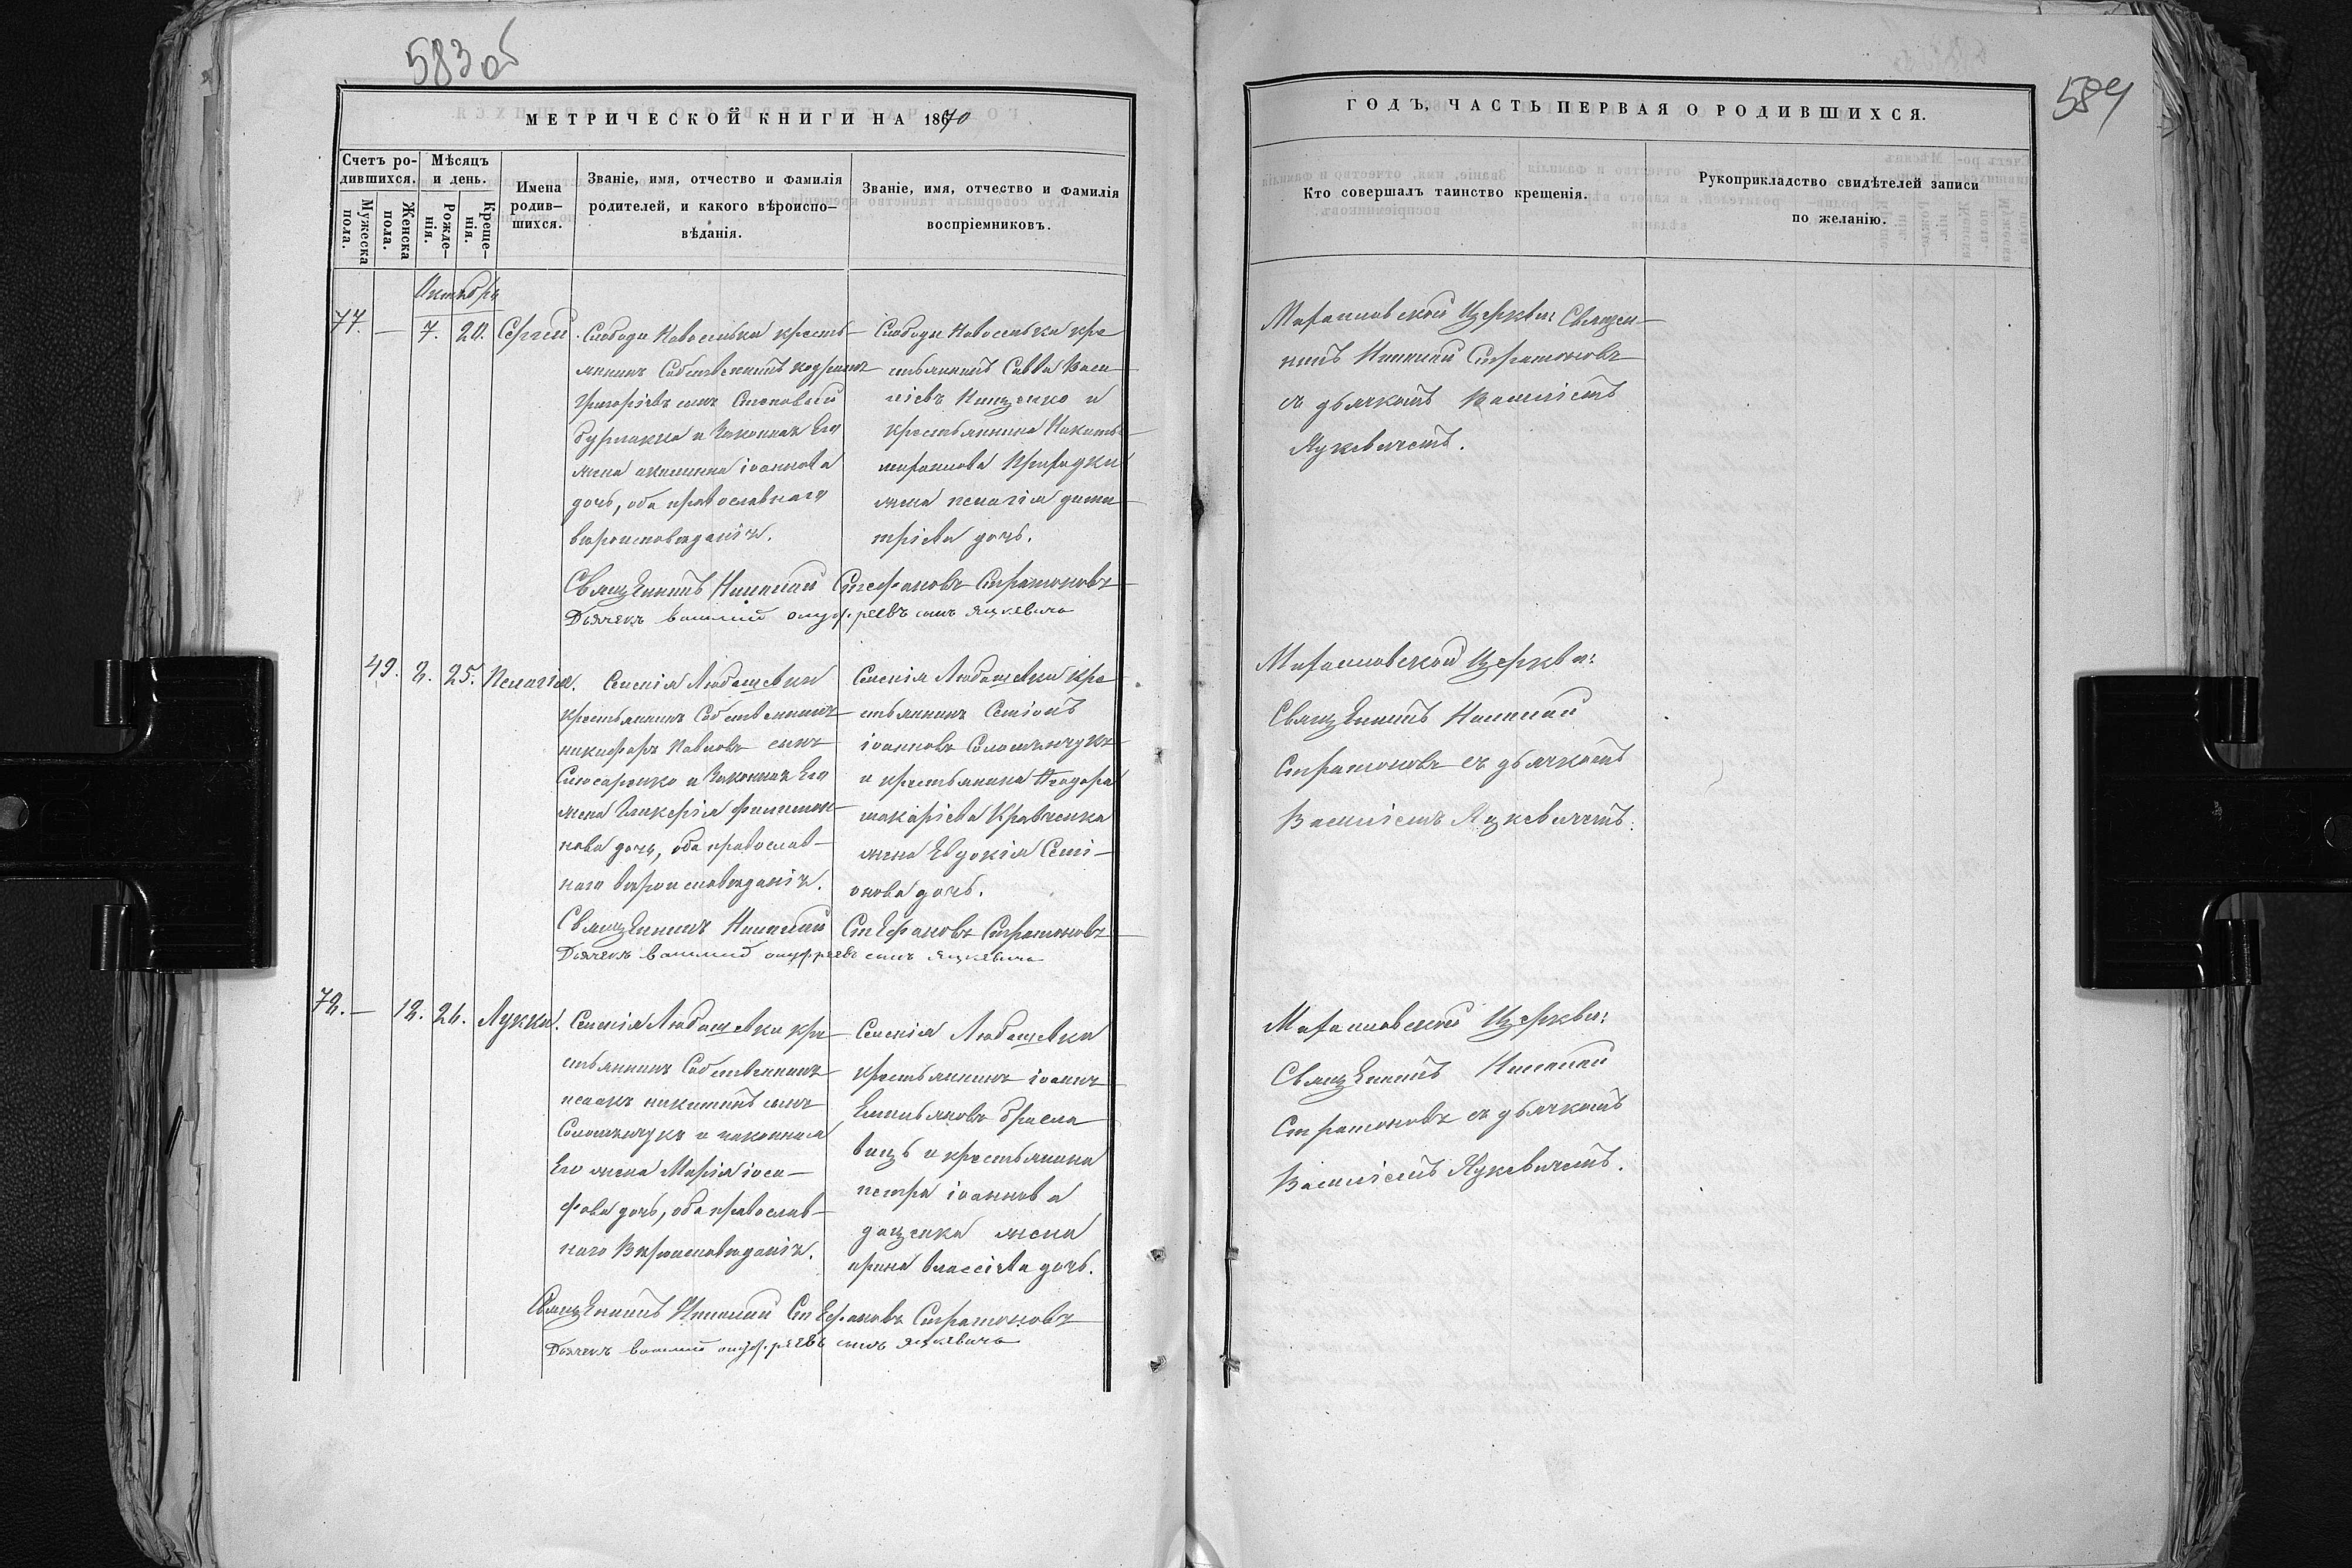 583 об
МЕТРИЧЕСКОЙ КНИГИ НА 1870
Счетъ ро-
дившихся.
Мѣсяцъ
и день.
Мужеска
пола.
Женска
пола.
Рожде-
нія.
Креще-
нія.
Имена
родив-
шихся.
Званіе, имя, отчество и фамилія
родителей, и какого вѣроиспо-
вѣданія.
Званіе, имя, отчество и фамилія
воспріемниковъ.
Октябрь
77. — 7. 20. Сергій.
Слобода Новоселька кресть-
янинъ Собственникъ
Григоріевъ сынъ
и Законная Его
жена акилина іоаннова
дочь, оба православнаго
вѣроисповѣданія.
Слобода Новоселька кре
стьянинъ Савва Васи
ліевъ Кищенко и
крестьянина
жена пелагія дими
тріева дочь.
Священникъ Николай Стефановъ Стратоновъ
Дьячекъ василий онуфріевъ сынъ яцкевичъ
49. 2. 25. Пелагія.
Селенія Любашевки
крестьянинъ Собственникъ
никифоръ Павловъ сынъ
Слюсаренко и Законная Его
жена Гликерія Филимон-
нова дочь, оба православ-
наго вѣроисповѣданія.
Селенія Любашевки кре
стьянинъ Семіонъ
іоанновъ Соломянчукъ
и крестьянина Феодора
макаріева Кравченка
жена Евдокія Семі-
онова дочь.
Священникъ Николай Стефановъ Стратоновъ
Дьячекъ василий онуфріевъ сынъ яцкевичъ
72. — 12. 26. Лукка.
Селенія Любашевки кре
стьянинъ Собственникъ
исаакъ никитинъ сынъ
Соломянчукъ и законная
Его жена Марія іоси-
фова дочь, оба православ-
наго Вѣроисповѣданія.
Селенія Любашевки
крестьянинъ іоаннъ
Емельяновъ
и крестьянина
петра іоаннова
даценка жена
ирина власіева дочь.
Священникъ Николай Стефановъ Стратоновъ
Дьячекъ василий онуфріевъ сынъ яцкевичъ
584
ГОДЪ, ЧАСТЬ ПЕРВАЯ О РОДИВШИХСЯ.
Кто совершалъ таинство крещенія.
Рукоприкладство свидѣтелей записи
по желанію.
Церкви: Священ-
никъ Николай Стратоновъ
съ дьячкомъ Василіемъ
Яцкевичемъ.
Церкви:
Священникъ Николай
Стратоновъ съ дьячкомъ
Василіемъ Яцкевичемъ.
Церкви:
Священникъ Николай
Стратоновъ съ дьячкомъ
Василіемъ Яцкевичемъ.